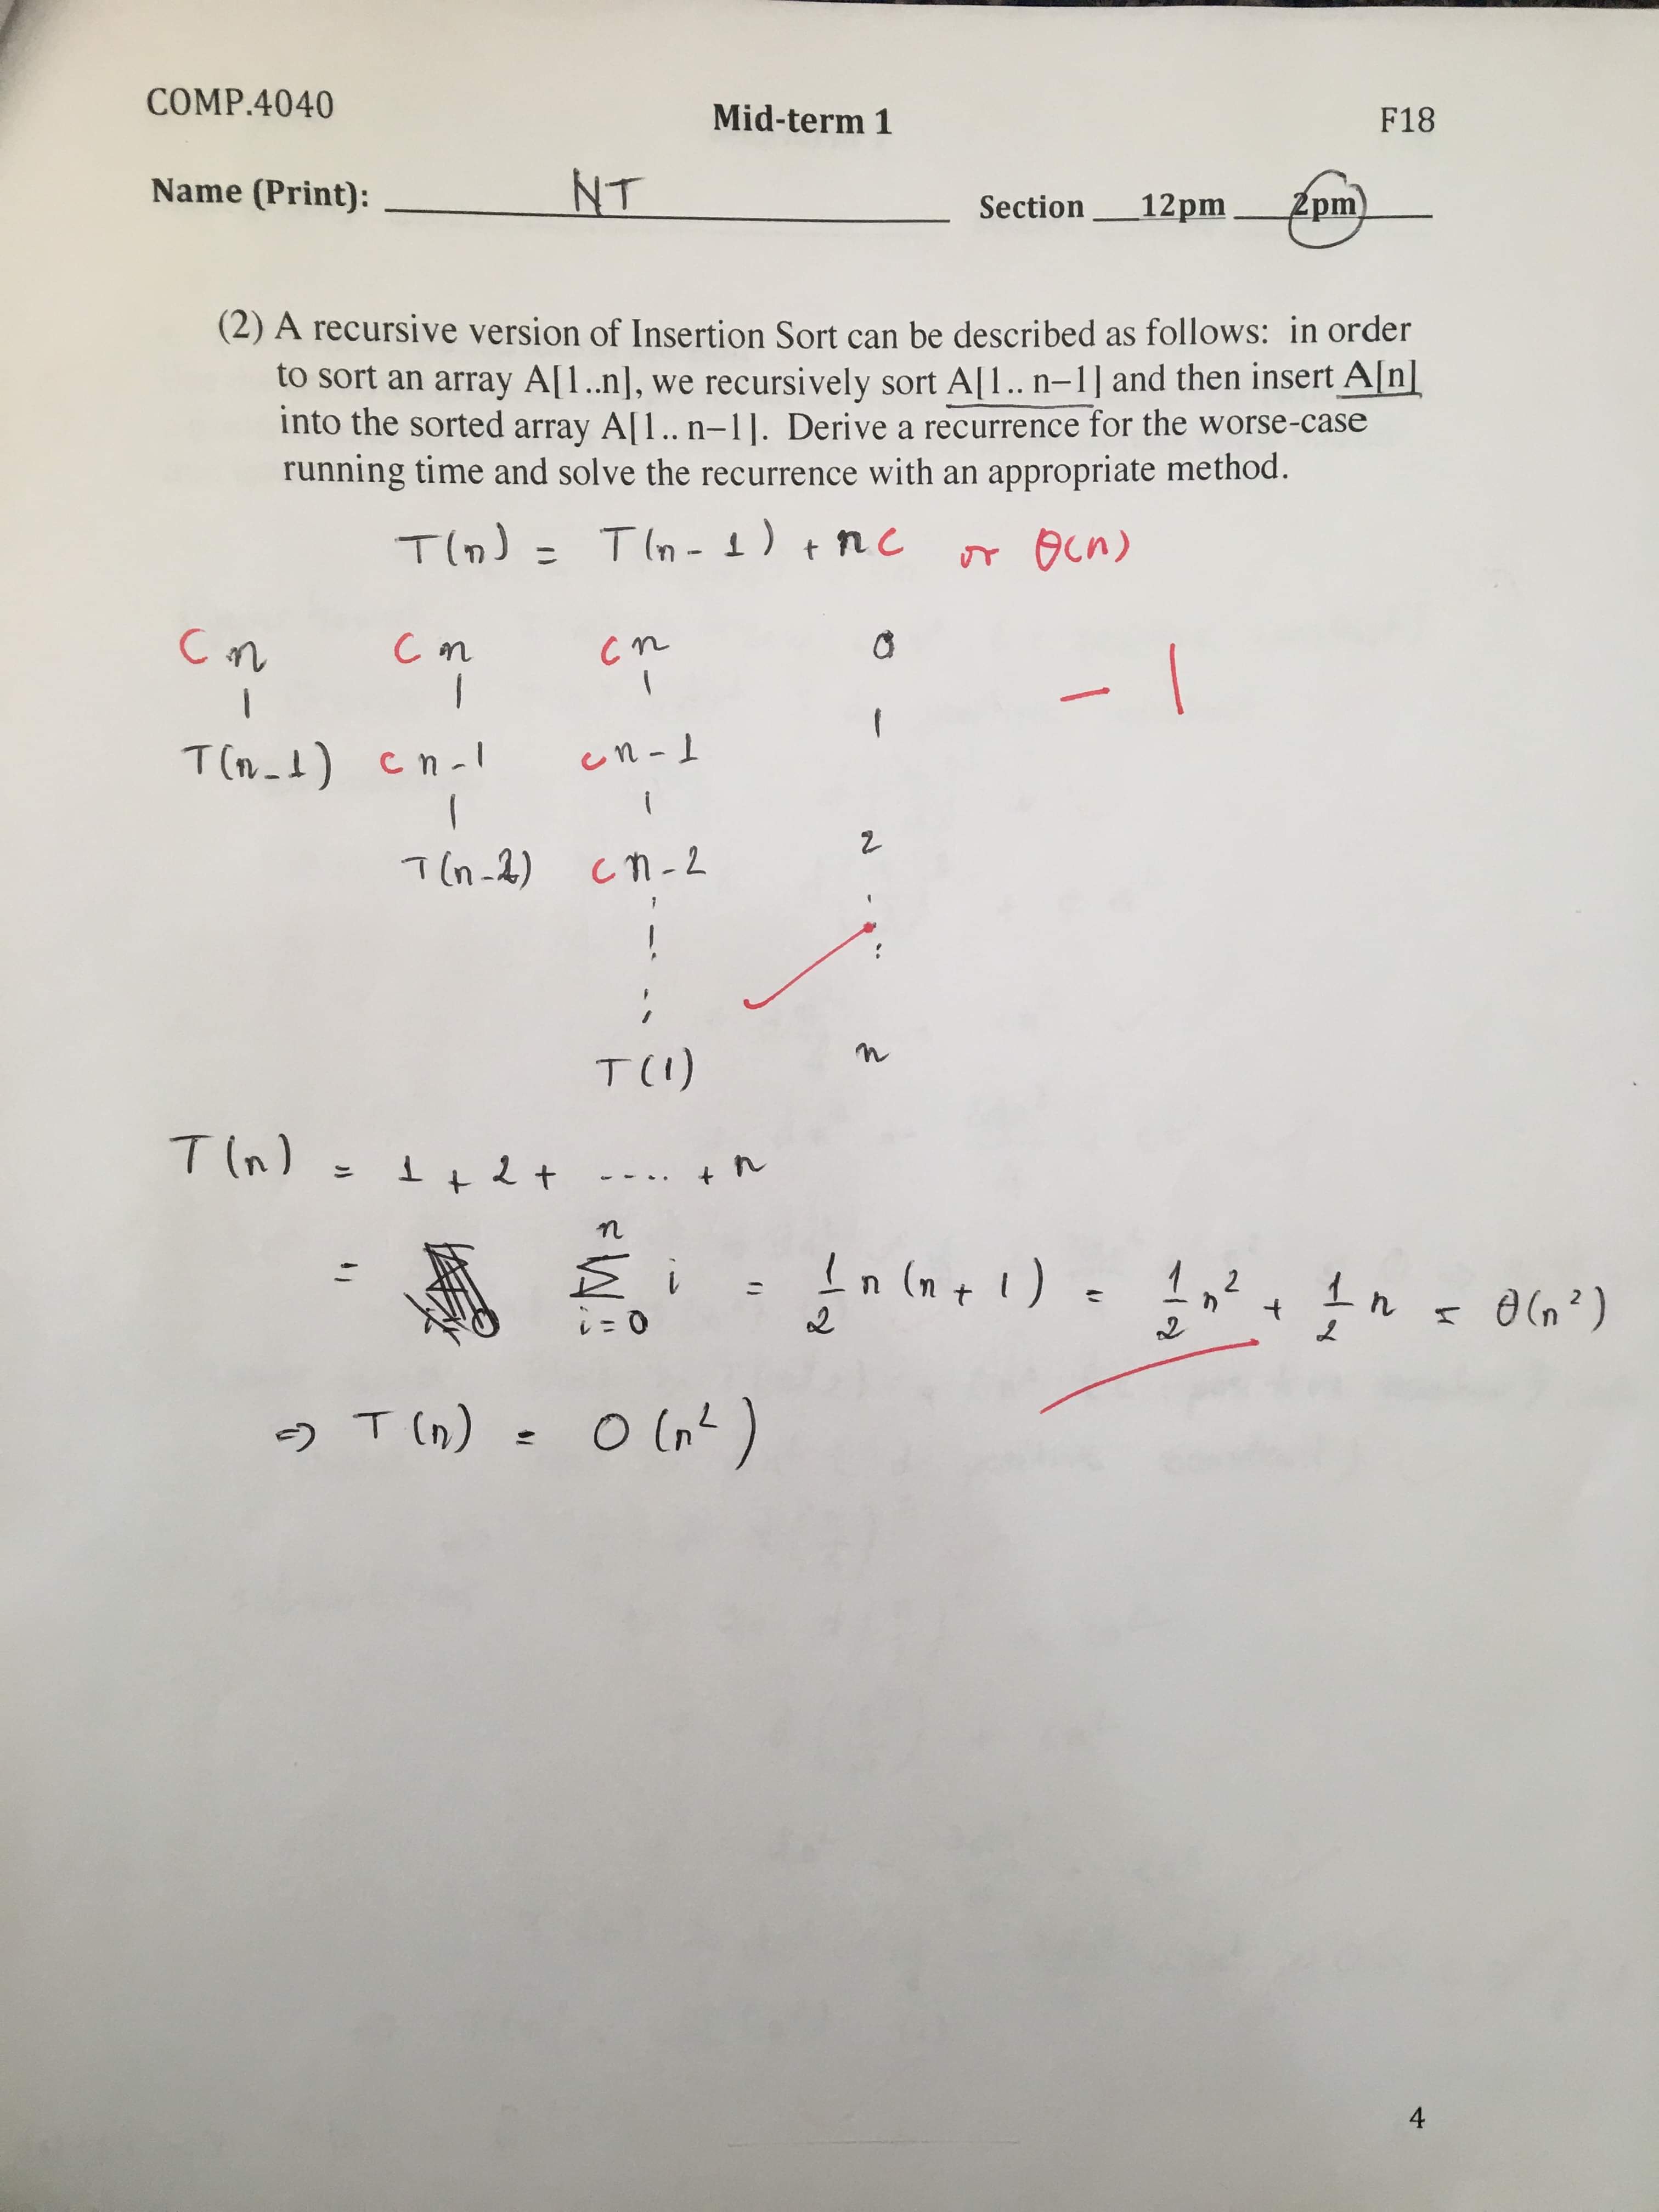 COMP.4040 Mid-term 1 F18
Name (Print): NT Section 12pm 2pm
(2) A recursive version of Insertion Sort can be described as follows: in order
to sort an array A[1..n], we recursively sort A[1.. n–1] and then insert A[n]
into the sorted array A[1.. n–1]. Derive a recurrence for the worse-case
running time and solve the recurrence with an appropriate method.
T(n) = T(n-1) + nc or θ(n)
cn cn cn 0
| | | 1
T(n-1) cn-1 cn-1
| |
T(n-2) cn-2 2
T(1) n
-1
T(n) = 1 + 2 + .... + n
= n Σ i=0 i = 1/2 n(n+1) = 1/2 n² + 1/2 n = θ(n²)
⇒ T(n) = O(n²)
4